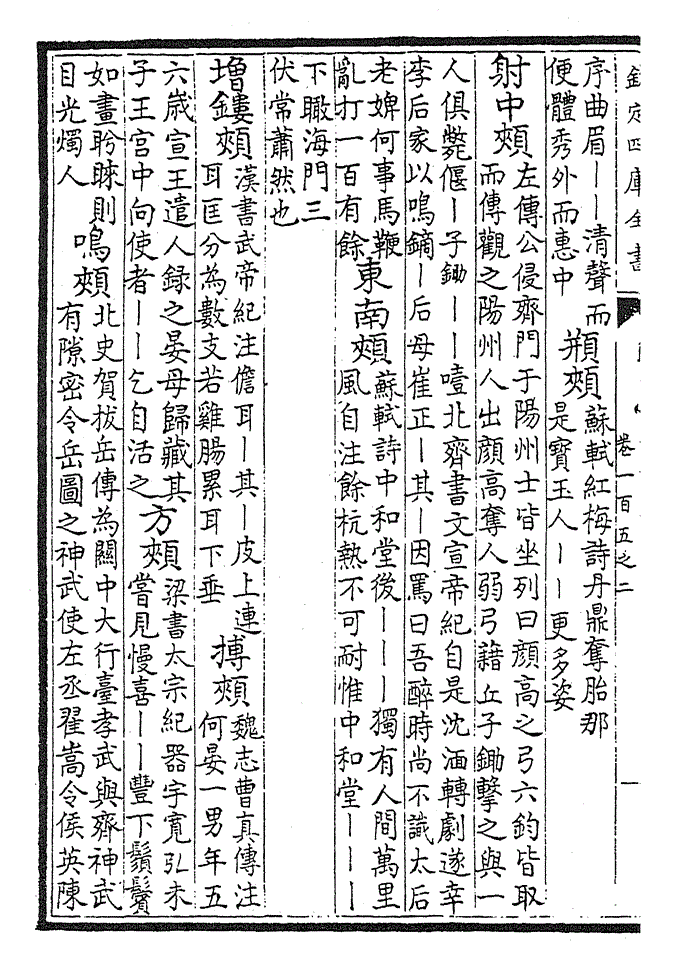 欽定四庫全書
卷一百五之二
一
序曲眉——清聲而
便體秀外而惠中
頩頰
蘇軾紅梅詩丹鼎奪胎那
是寶玉人——更多姿
射中頰
左傳公侵齊門于陽州士皆坐列曰顔高之弓六鈞皆取
而傳觀之陽州人出顔高奪人弱弓籍丘子鋤擊之與一
人俱斃偃—子鋤——噎北齊書文宣帝紀自是沈湎轉劇遂幸
李后家以鳴鏑—后母崔正—其—因罵曰吾醉時尚不識太后
老婢何事馬鞭
亂打一百有餘
東南頰
蘇軾詩中和堂後———獨有人間萬里
風自注餘杭熱不可耐惟中和堂———
下瞰海門三
伏常蕭然也
增鏤頰
漢書武帝紀注儋耳—其—皮上連
耳匡分為數支若雞腸累耳下垂
摶頰
魏志曹真傳注
何晏一男年五
六歲宣王遣人録之晏母歸藏其
子王宫中向使者——乞自活之
方頰
梁書太宗紀器宇寬弘未
嘗見慢喜——豐下鬚鬢
如畫聆睞則
目光燭人
鳴頰
北史賀拔岳傳為關中大行臺孝武與齊神武
有隙密令岳圖之神武使左丞翟嵩令侯英陳